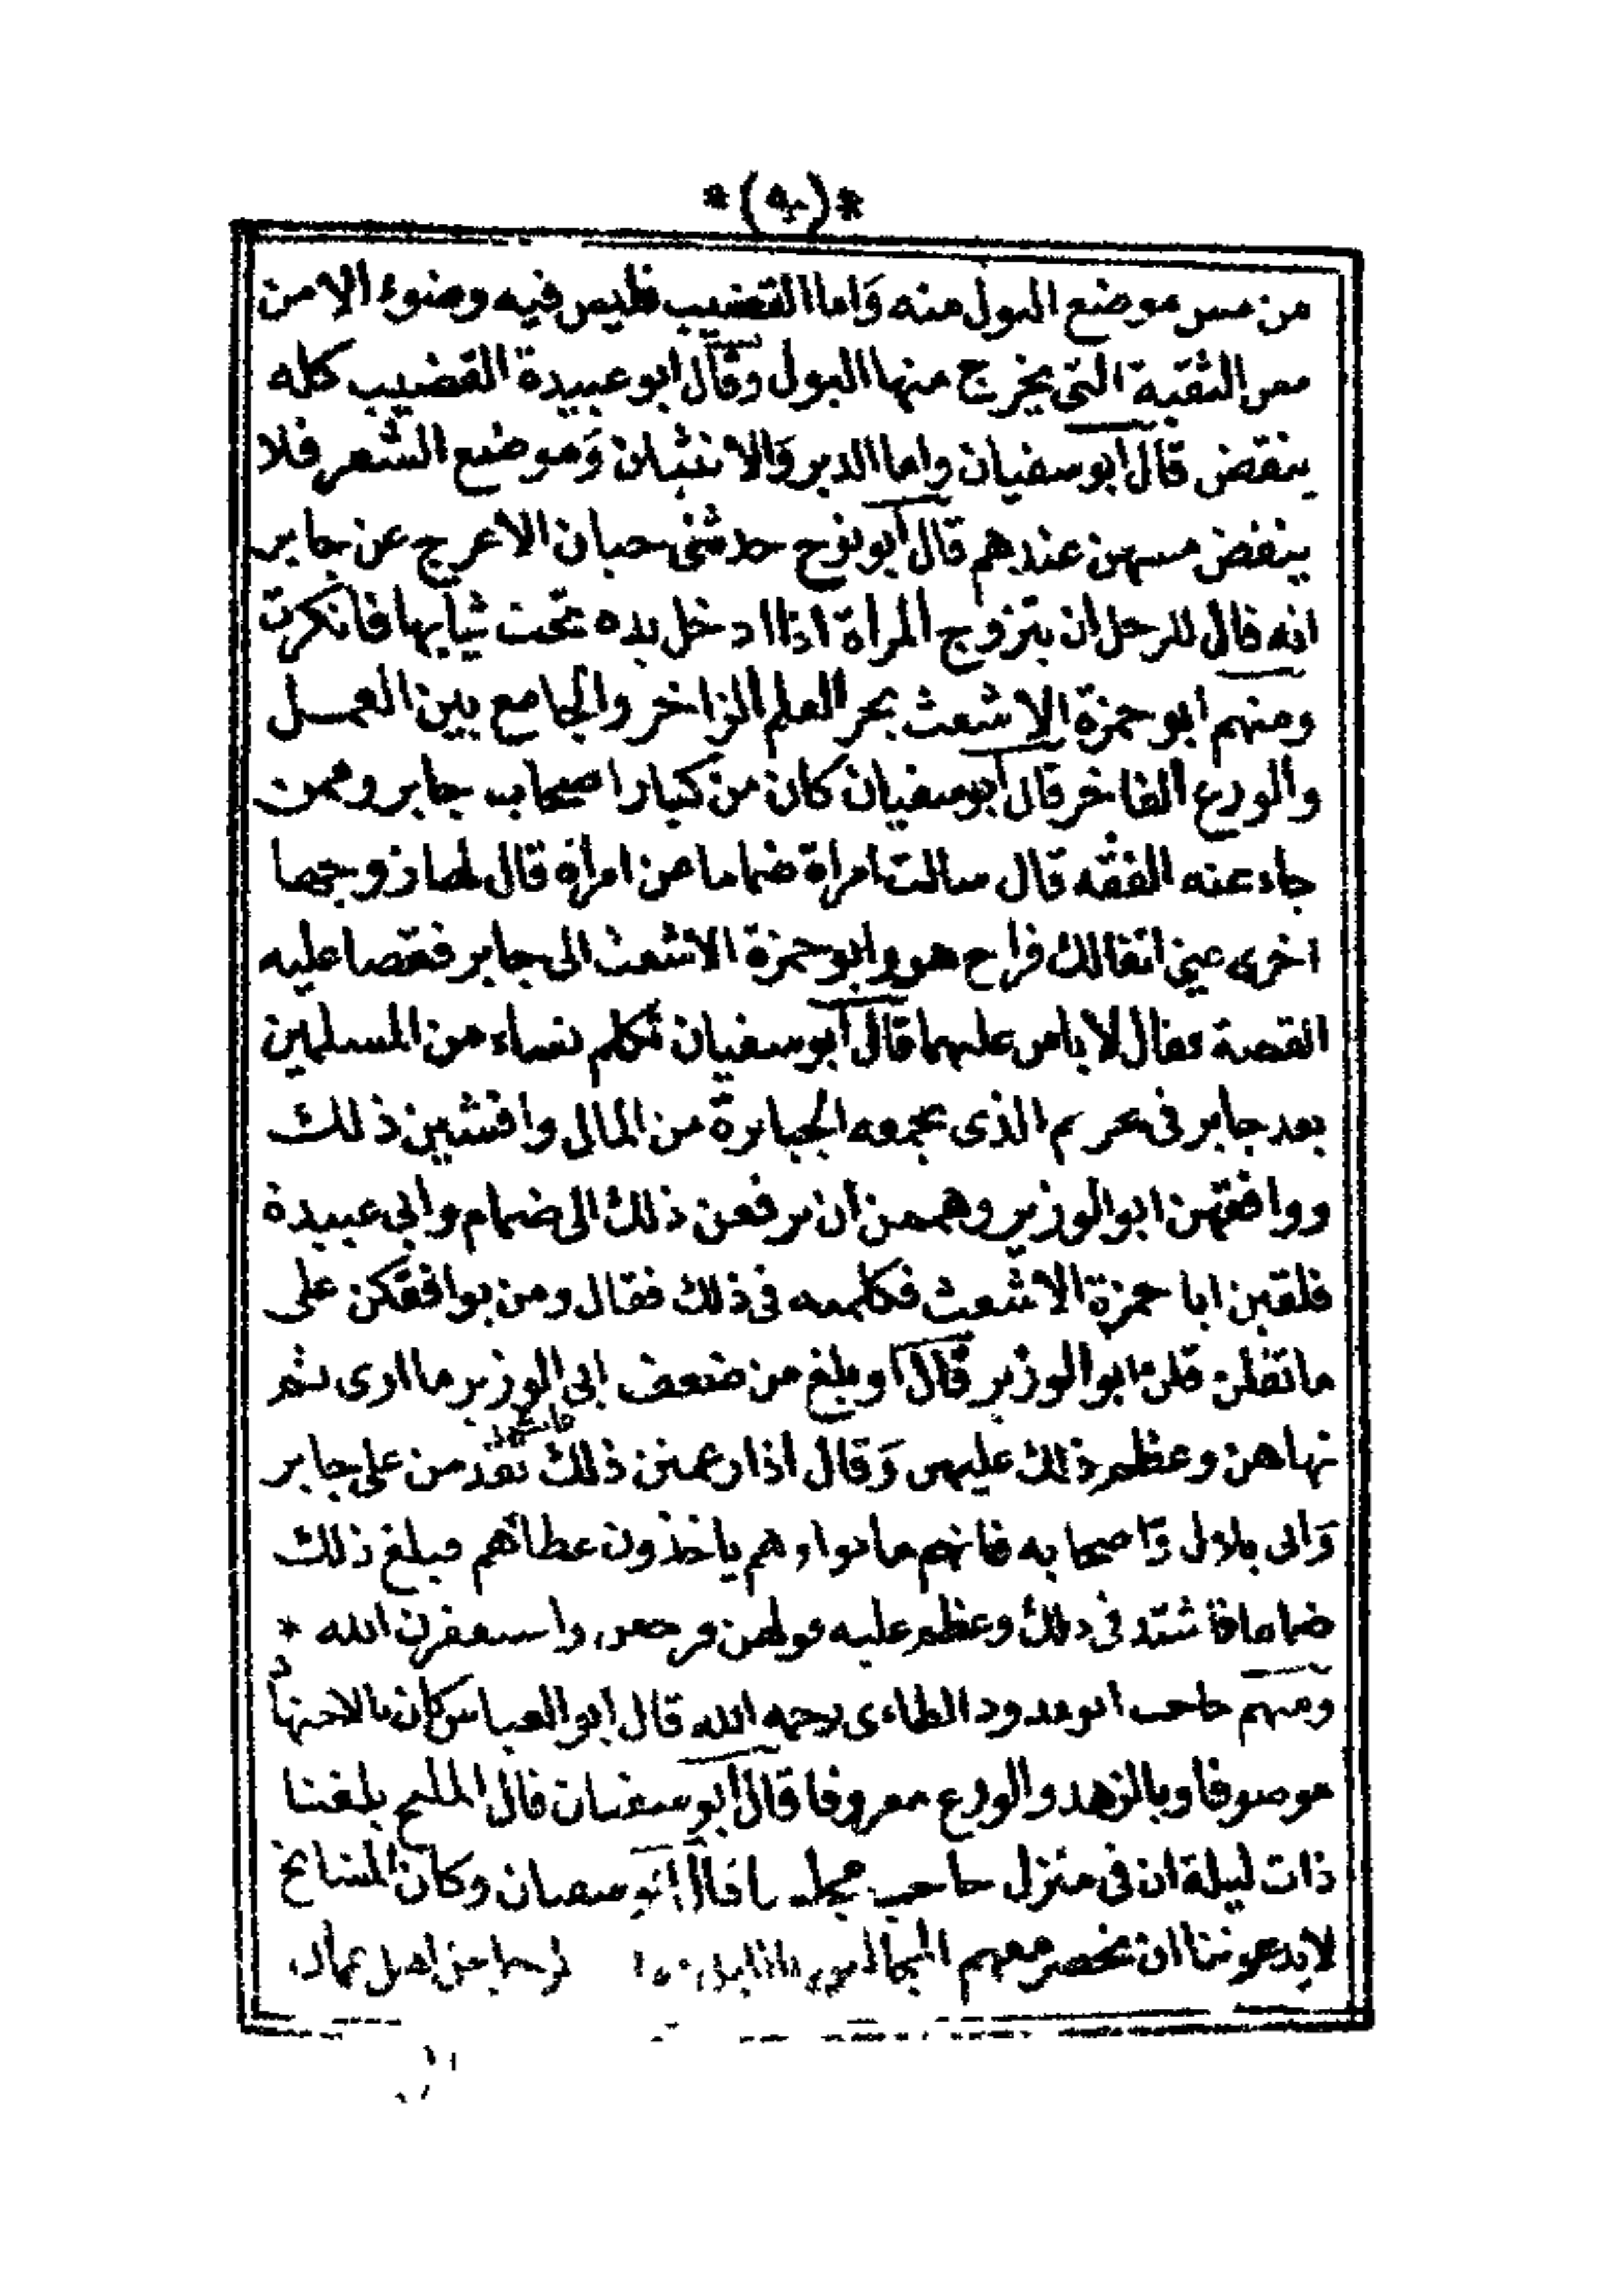 *(٩٠)*
من مس موضع البول منه وَاما القضيب فليس فيه وضوء الا من
مس الثقبة التى يخرج منها البول وقال ابو عبيدة القضيب كله
ينقض قال ابو سفيان واما الدبر وَالانثيان وَموضع الشعر فلا
ينقض مسهن عندهم قال ابو نوح حدثنى حبان الاعرج عن جابر
انه قال للرجل ان يتزوج المراة اذا ادخل يده تحت ثيابها فانكرت
ومنهم ابو حمزة الاشعث بحر العلم الزاخر والجامع بين العمل
والورع الفاخر قال ابو سفيان كان من كبار اصحاب جابر وممن
جاء عنه الفقه قال سالت امراة ضماما عن امراة قال لها زوجها
اخرى عينى اتقالك فراح هو وابو حمزة الاشعث الى جابر فقصا عليه
القصة فقال لا باس عليهما قال ابو سفيان تكلم نساء من المسلمين
بعد جابر فى تحريم الذى يجمعه الجبابرة من المال وافشين ذلك
ووافقهن ابو الوزير وهممن ان يرفعن ذلك الى ضمام وابى عبيدة
فلقين ابا حمزة الاشعث فكلمنه فى ذلك فقال ومن يوافقكن على
ما تقلن قلن ابو الوزير قال او بلغ من ضعف ابى الوزير ما ارى ثم
نهاهن وعظم ذلك عليهن وَقال اذا زعمتن ذلك تقدمن على جابر
وَابى بلال وَاصحابه فانهم ماتوا وهم ياخذون عطائهم فبلغ ذلك
ضماما فاشتد فى ذلك وعظم عليه قولهن فرجعن واستغفرن الله *
ومنهم حاجب ابو مودود الطاءى رحمه الله قال ابو العباس كان بالاجتهاد
موصوفا وبالزهد والورع معروفا قال ابو سفيان قال المليح بلغنا
ذات ليلة ان فى منزل حاجب مجلسا قال ابو سفيان وكان المشايخ
لا يدعوننا ان نحضر معهم المجالس من اهل عمان